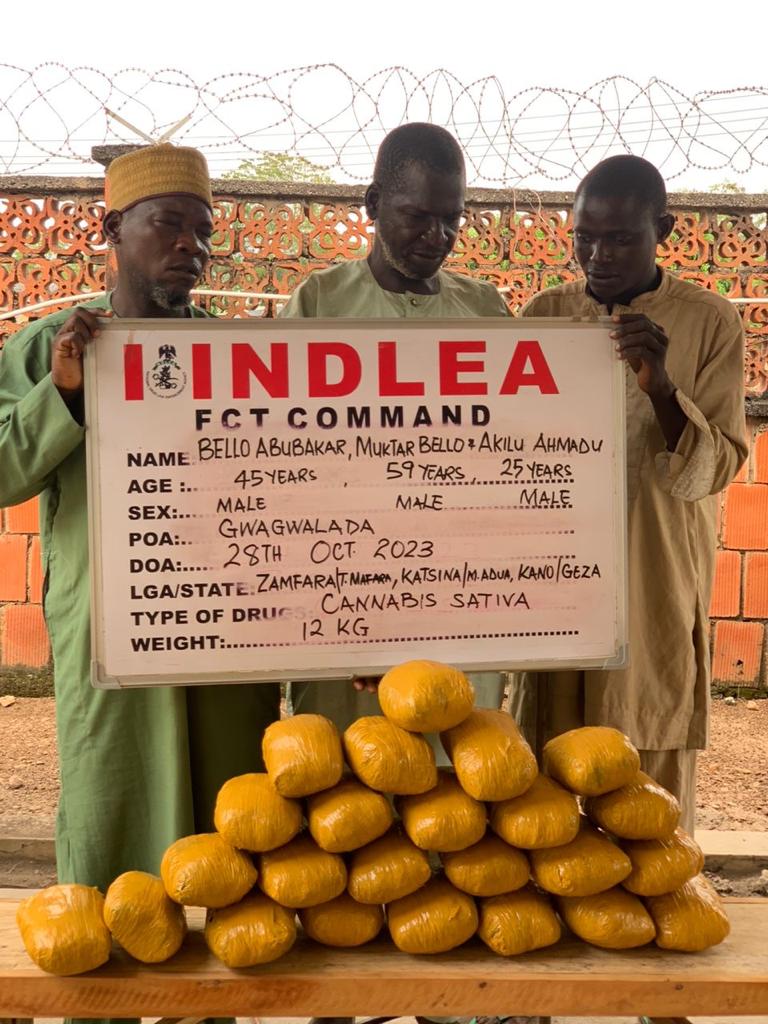 NDLEA
FCT COMMAND
NAME BELLO ABUBAKAR, MUKTAR BELLO & AKILU AHMADU
AGE :.. 45 YEARS , 59 YEARS, 25 YEARS
SEX:.. MALE MALE MALE
POA:.. GWAGWALADA
DOA:.... 28TH OCT. 2023
LGA/STATE: ZAMFARA/T.MAFARA, KATSINA/M.ADUA, KANO/GEZA
TYPE OF DRUGS: CANNABIS SATIVA
WEIGHT:.. 12 KG